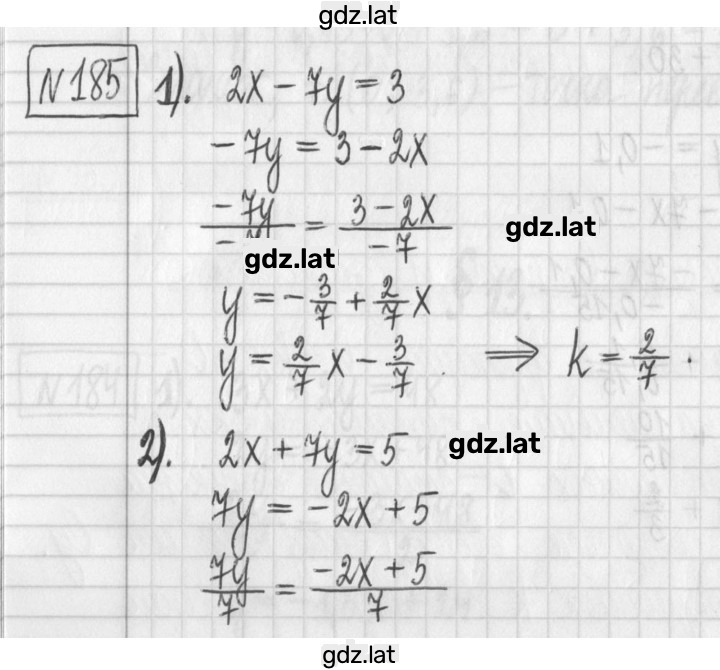 gdz.lat
№185 1). 2x - 7y = 3
-7y = 3 - 2x
-7y/-7 = 3-2x/-7
gdz.lat
gdz.lat
y = -3/7 + 2/7 x
y = 2/7 x - 3/7 . ⇒ k = 2/7 .
2). 2x + 7y = 5
gdz.lat
7y = -2x + 5
7y/7 = -2x+5/7
gdz.lat